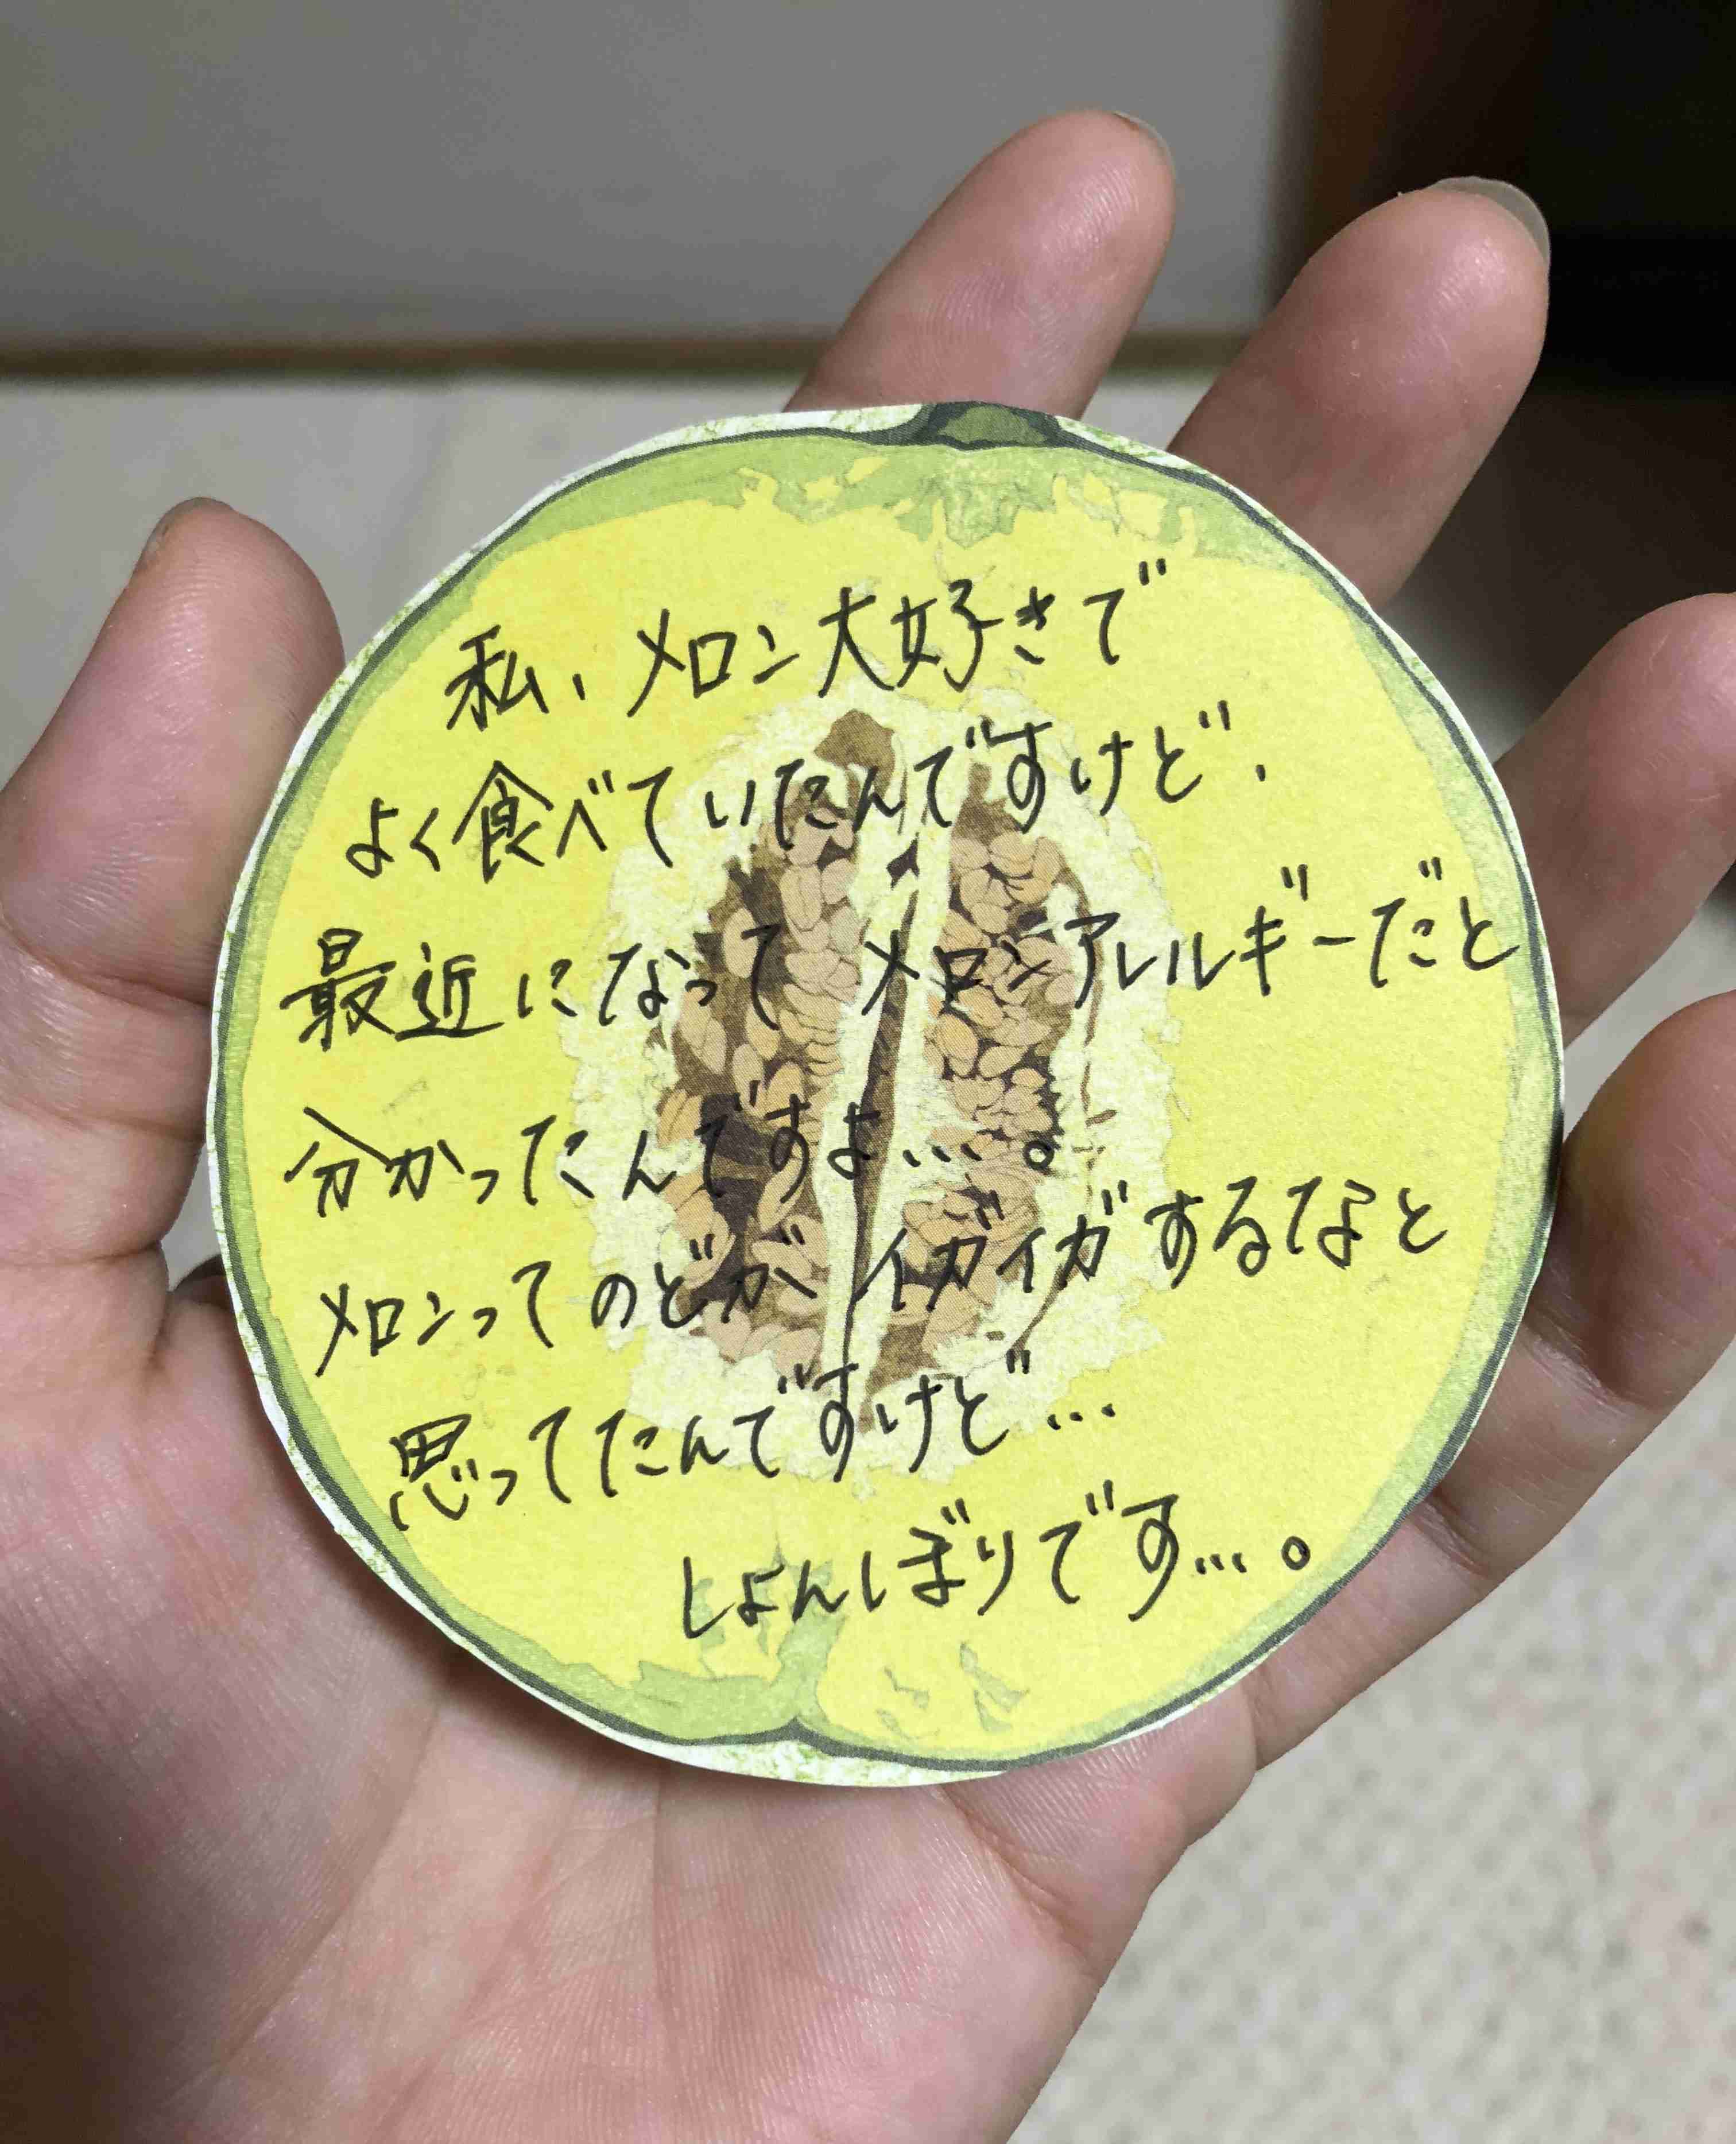 私、メロン大好きで
よく食べていたんですけど、
最近になってメロンアレルギーだと
分かったんですよ…。
メロンってのどがイガイガするなと
思ってたんですけど…
しょんぼりです…。